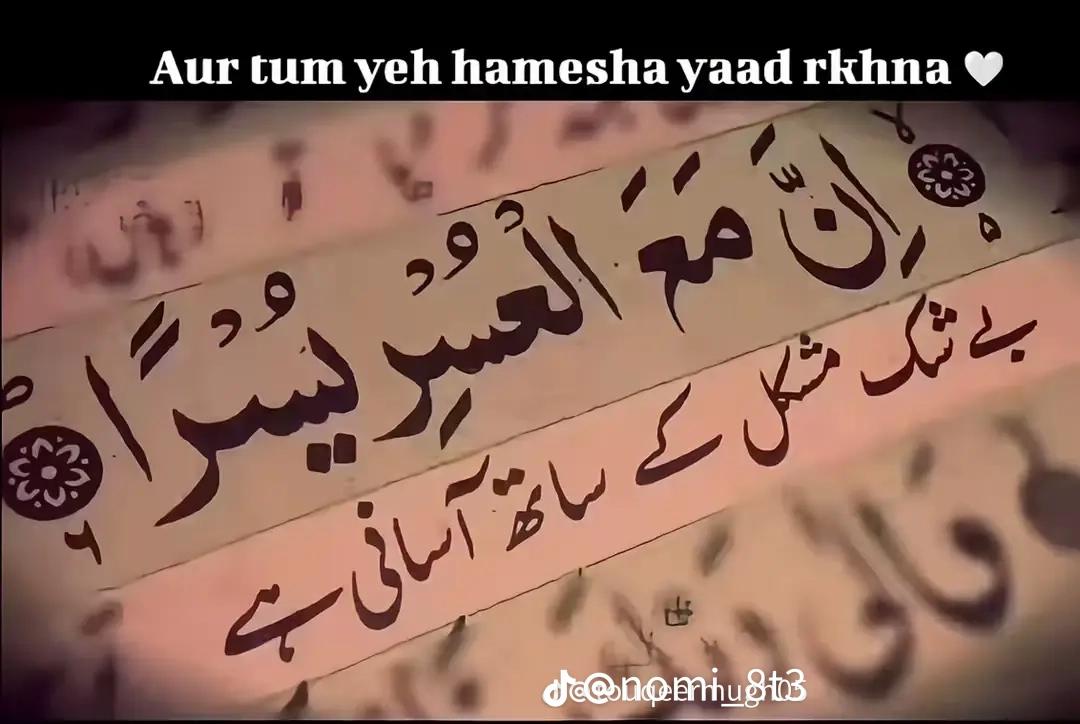 Aur tum yeh hamesha yaad rkhna 🤍
اِنَّ مَعَ الْعُسْرِ يُسْرًا
بے شک مشکل کے ساتھ آسانی ہے
@nomi_8t3